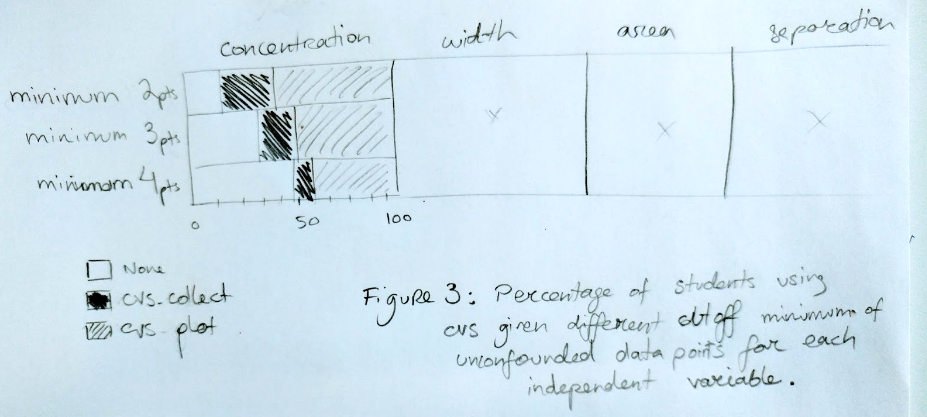 concentration width area separation
minimum 2pts
minimum 3pts
minimum 4pts
0 50 100
None
cvs_collect
cvs_plot
Figure 3: Percentage of students using
cvs given different cutoff minimums of
unconfounded data points for each
independent variable.